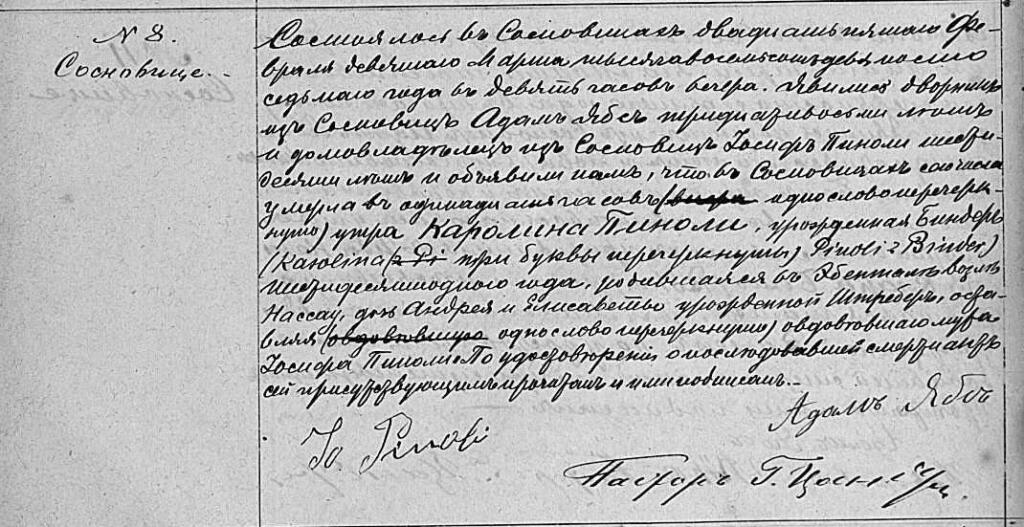 N 8.
Сосновице.
Состоялось въ Сосновицахъ двадцать пятаго Фе-
враля девятаго Марта тысяча восемьсотъ девяносто
седьмаго года въ девять часовъ вечера. Явились дворникъ
изъ Сосновицъ Адамъ Ябсъ тридцати восьми лѣтъ
и домовладѣлецъ изъ Сосновицъ Іосифъ Пиноли шести-
десяти лѣтъ и объявили намъ, что въ Сосновицахъ сего числа
умерла въ одинадцать часовъ (вчера одно слово перечерк-
нуто) утра Каролина Пиноли, урожденная Биндеръ
(Karolina (z Pi три буквы перечеркнуты) Pinoli z Binder)
шестидесяти одного года, родившаяся въ возлѣ
Нассау, дочь Андрея и Елисаветы урожденной Штреберъ, оста-
вляя (овдовѣвшую одно слово перечеркнуто) овдовѣвшаго мужа
Іосифа Пиноли. По удостовѣреніи о послѣдовавшей смерти актъ
сей присутствующимъ прочитанъ и ими подписанъ.
Адамъ Ябсъ
Jo Pinoli
Пасторъ Г.